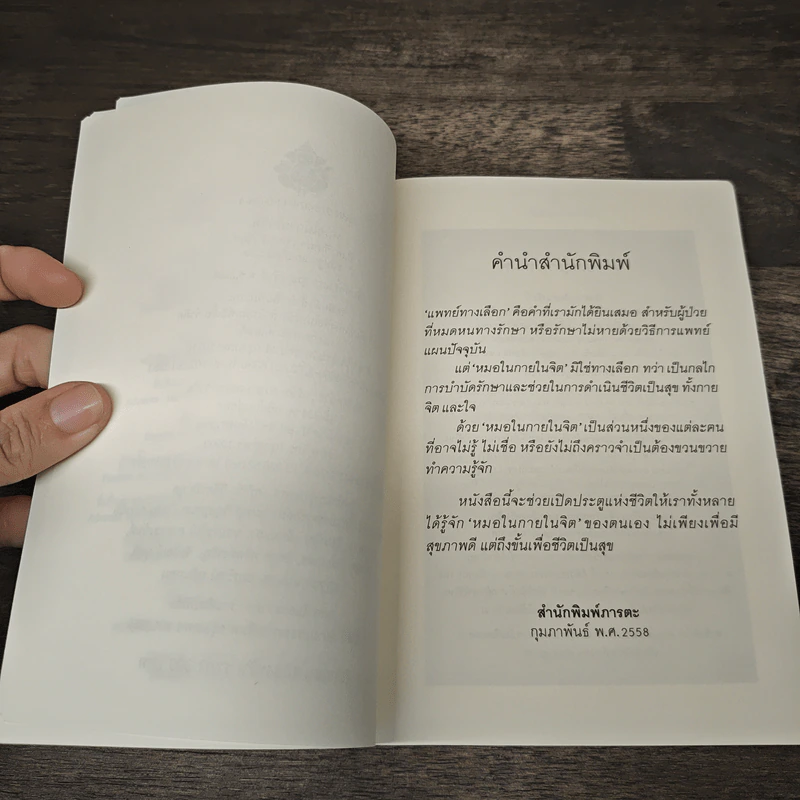 คำนำสำนักพิมพ์
‘แพทย์ทางเลือก’ คือคำที่เรามักได้ยินเสมอ สำหรับผู้ป่วย
ที่หมดหนทางรักษา หรือรักษาไม่หายด้วยวิธีการแพทย์
แผนปัจจุบัน
แต่ ‘หมอในกายในจิต’ มิใช่ทางเลือก ทว่า เป็นกลไก
การบำบัดรักษาและช่วยในการดำเนินชีวิตเป็นสุข ทั้งกาย
จิต และใจ
ด้วย ‘หมอในกายในจิต’ เป็นส่วนหนึ่งของแต่ละคน
ที่อาจไม่รู้ ไม่เชื่อ หรือยังไม่ถึงคราวจำเป็นต้องขวนขวาย
ทำความรู้จัก
หนังสือนี้จะช่วยเปิดประตูแห่งชีวิตให้เราทั้งหลาย
ได้รู้จัก ‘หมอในกายในจิต’ ของตนเอง ไม่เพียงเพื่อมี
สุขภาพดี แต่ถึงขั้นเพื่อชีวิตเป็นสุข
สำนักพิมพ์ภารตะ
กุมภาพันธ์ พ.ศ. 2558